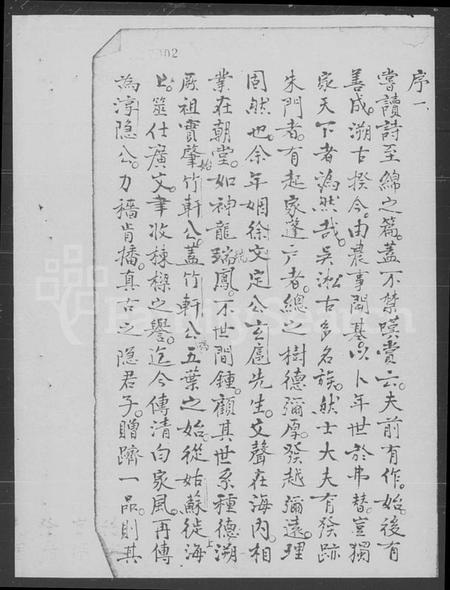 302
序一
嘗讀詩至綿之篇蓋不禁嘆賞云夫前有作始後有
善成溯古揆今由農事開基以卜年世於弗替豈獨
家天下者為然哉吳淞古多名族然士大夫有發跡
朱門者有起家蓬戶者總之樹德彌厚發越彌遠理
固然也余年姻徐文定公玄扈先生文聲在海內相
業在朝堂如神龍瑞鳳不世間鍾顧其世系種德溯
厥祖實肇竹軒公蓋竹軒公五葉之始從姑蘇徙海
上筮仕廣文聿收棫樸之譽迄今傳清白家風再傳
為淳隱公力穡肯播真古之隱君子贈躋一品則其
FamilySearch